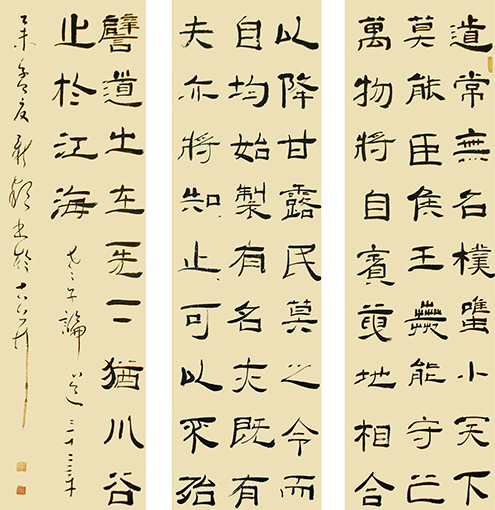 道常無名樸雖小天下
莫能臣侯王若能守之
萬物將自賓天地相合
以降甘露民莫之令而
自均始製有名亦既有
夫亦將知止可以不殆
譬道之在天下猶川谷
止於江海 老子論道三十二章
乙未 書於